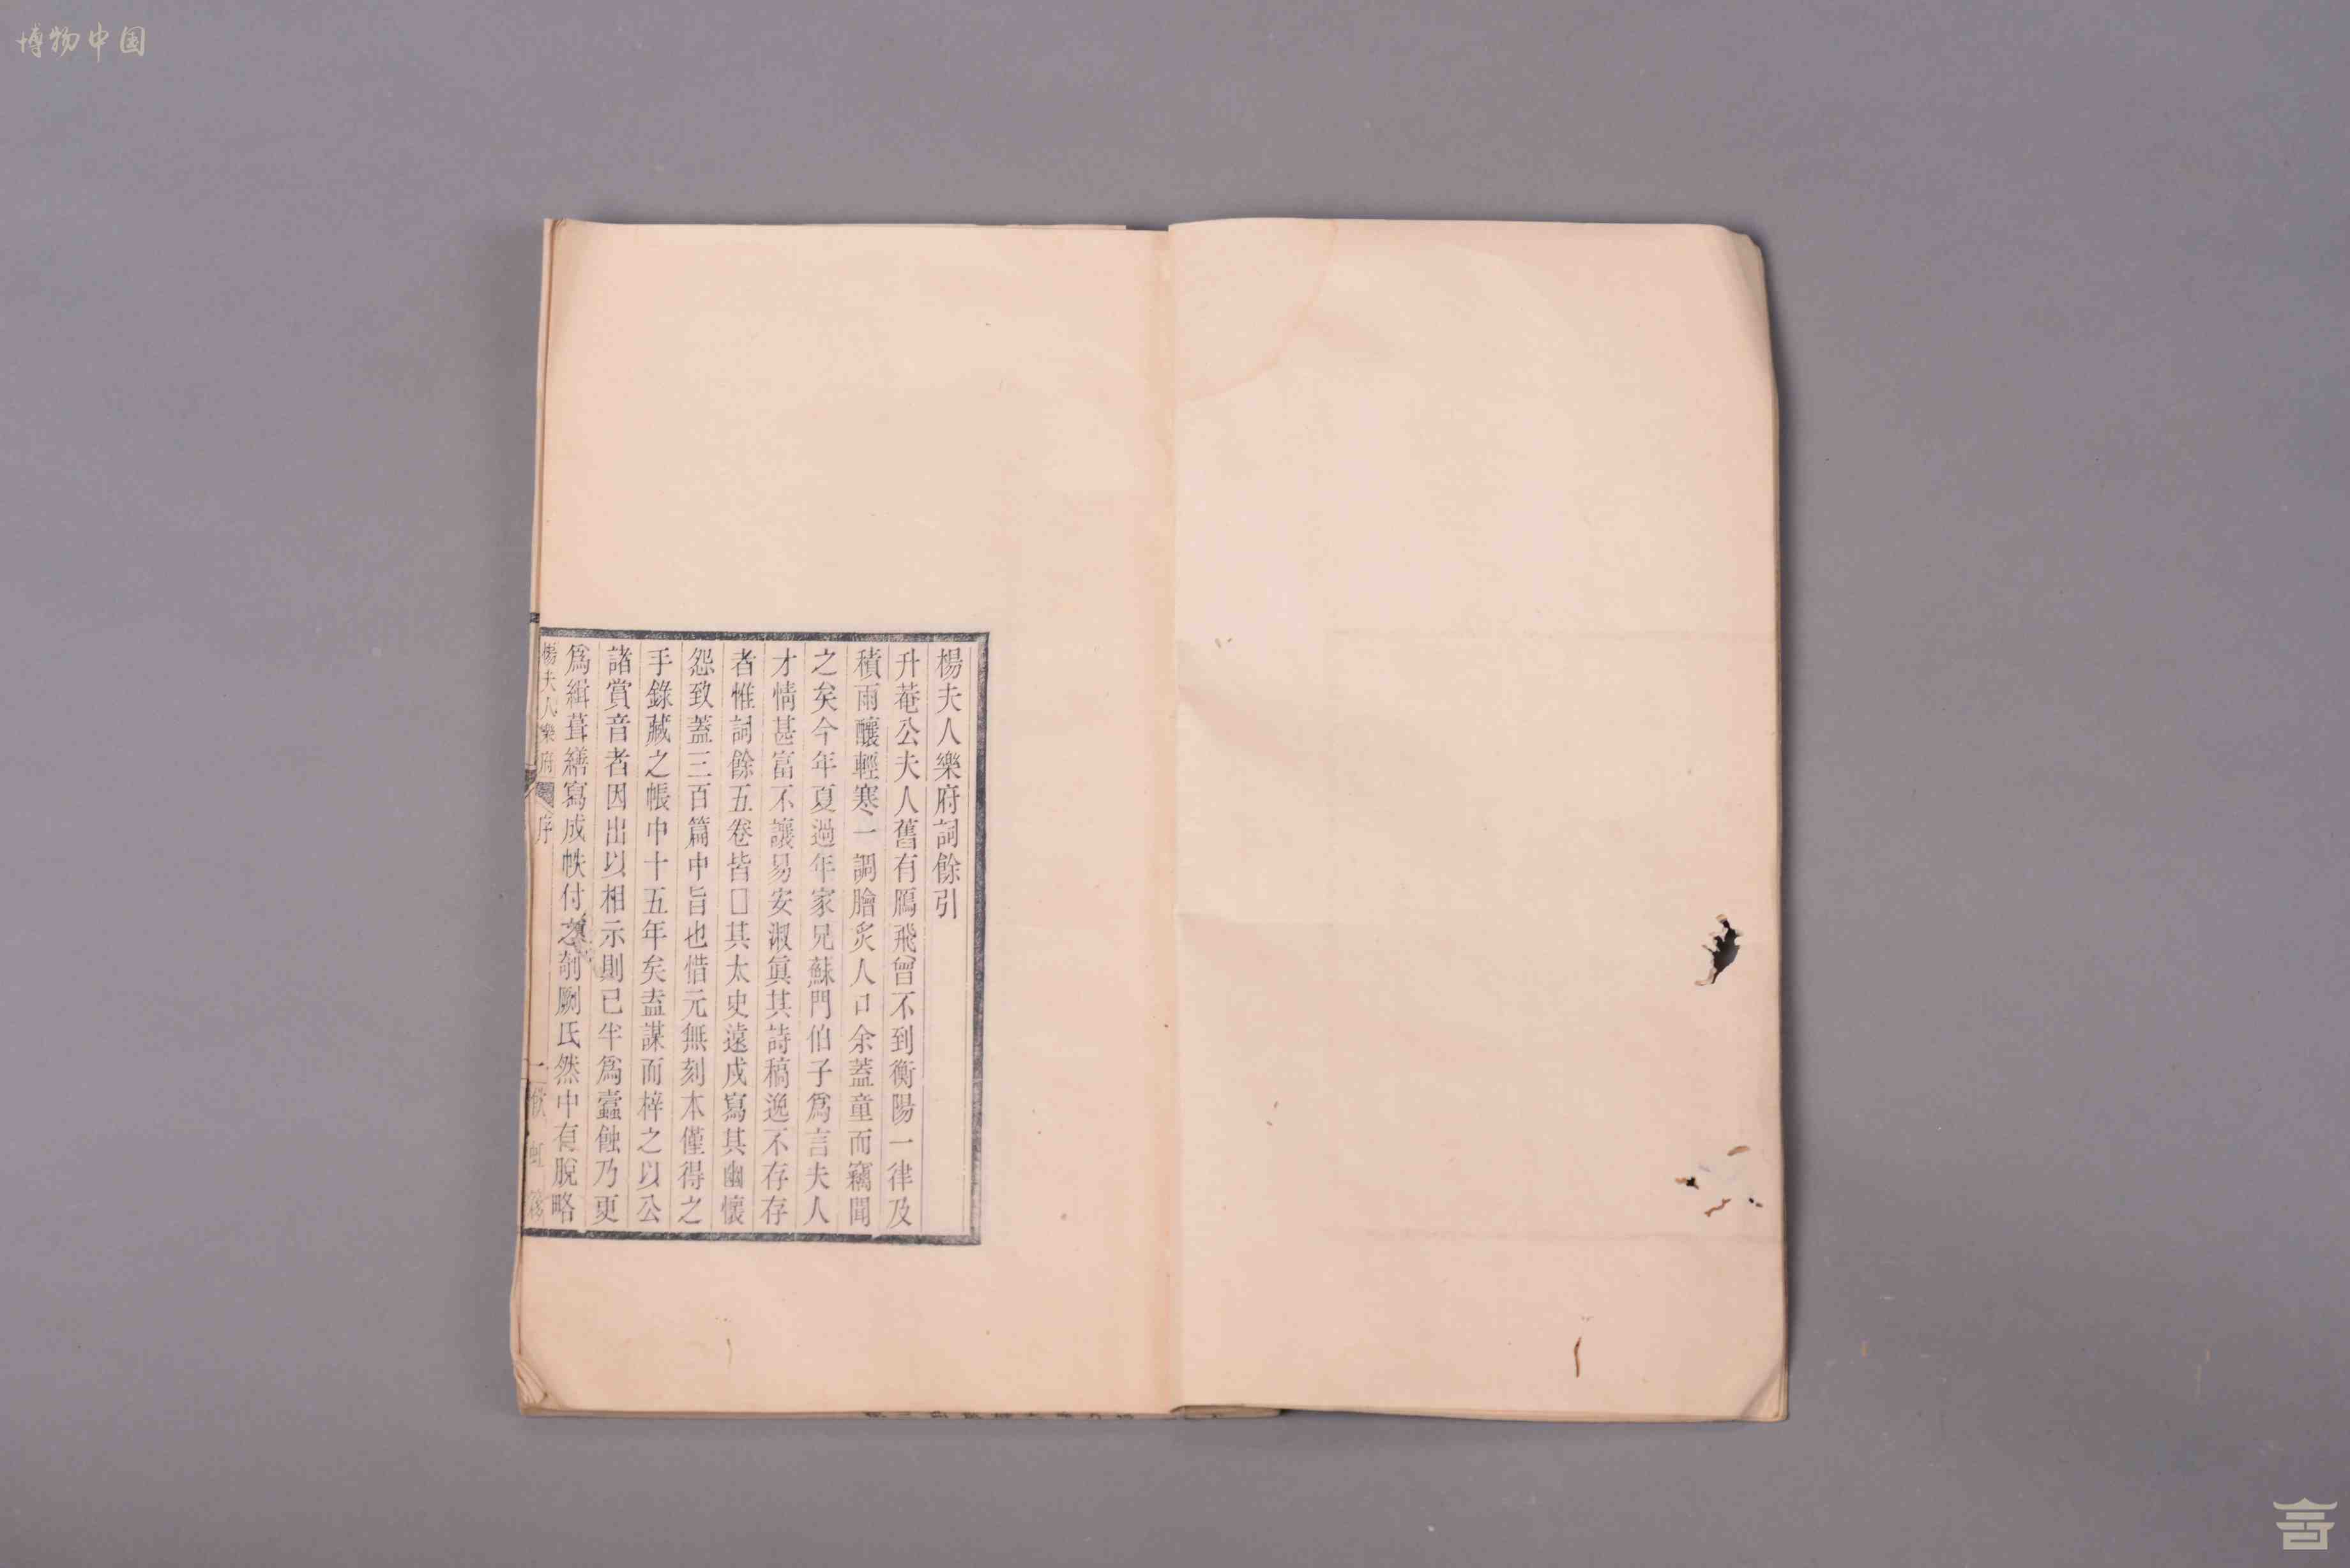 博物中国
楊夫人樂府詞餘引
升菴公夫人舊有鴈飛曾不到衡陽一律及
積雨釀輕寒一調膾炙人口余蓋童而竊聞
之矣今年夏過年家兄蘇門伯子爲言夫人
才情甚富不讓易安淑眞其詩稿逸不存存
者惟詞餘五卷皆□其太史遠戍寫其幽懷
怨致蓋三百篇中旨也惜元無刻本僅得之
手錄藏之帳中十五年矣盍謀而梓之以公
諸賞音者因出以相示則已半爲蠹蝕乃更
爲緝葺繕寫成帙付之剞劂氏然中有脫略
楊夫人樂府 序 一